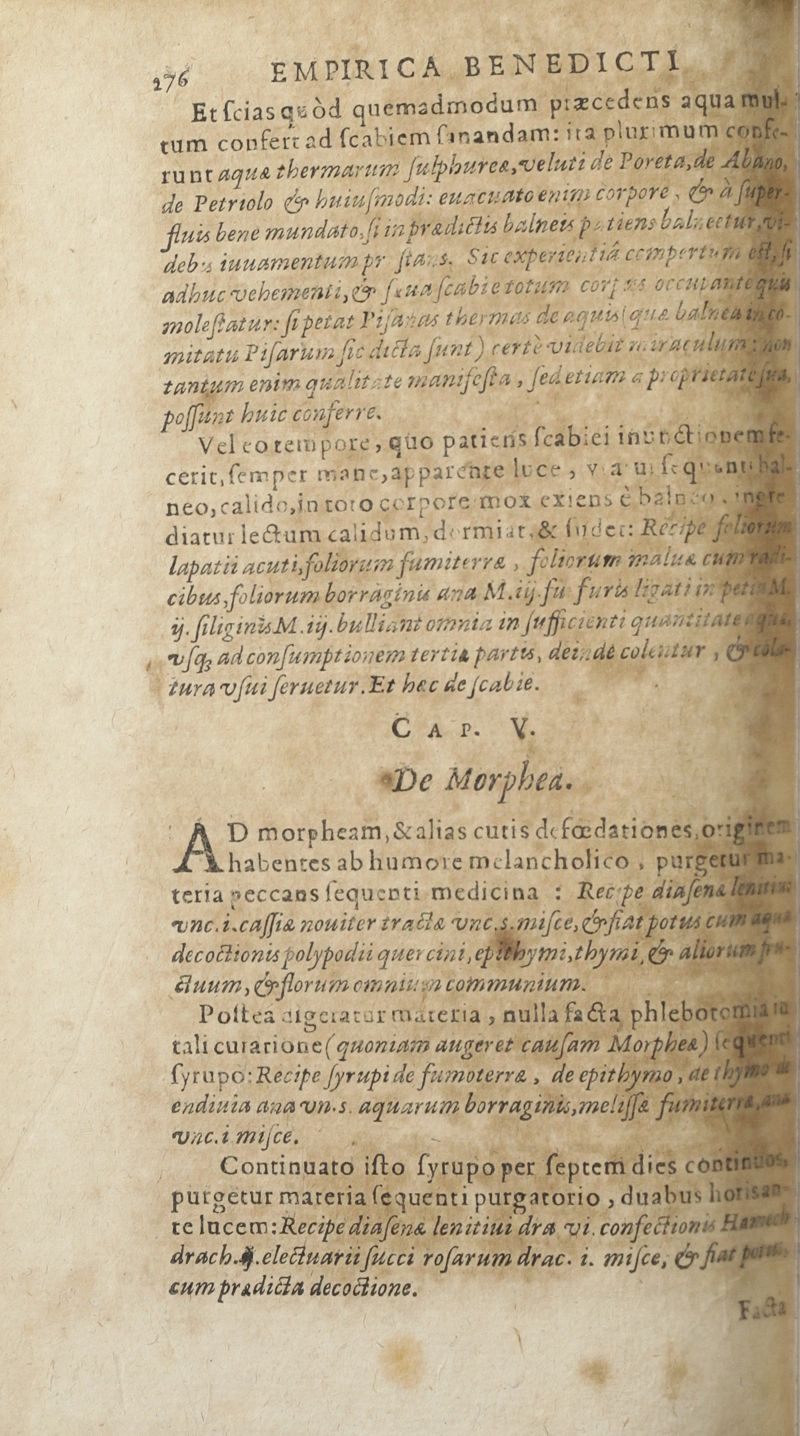 276 EMPIRICA BENEDICTI
Et ſcias quòd quemadmodum præcedens aqua mul-
tum confert ad ſcabiem ſanandam: ita plurimum confe-
runt aquæ thermarum ſulphureæ, veluti de Poreta, de Abano,
de Petriolo & huiuſmodi: euacuato enim corpore, & à ſuper-
fluis bene mundato, ſi in prædictis balneis patiens balneetur, vi-
debis iuuamentum præſtans. Sic experientiâ compertum eſt, ſi
adhuc vehementi, & ſæua ſcabie totum corpus occupante quis
moleſtatur: ſi petat Piſanas thermas de aquis (quæ balnea in co-
mitatu Piſarum ſic dicta ſunt) certè videbit miraculum: non
tantum enim qualitate manifeſta, ſed etiam a proprietate ſua,
poſſunt huic conferre.
Vel eo tempore, quo patiens ſcabiei inunctionem fe-
cerit, ſemper mane, apparente luce, ſequenti bal-
neo, calido, in toto corpore mox exiens è balneo, ingre
diatur lectum calidum, dormiat, & ſudet: Recipe foliorum
lapatii acuti, foliorum fumiterræ, foliorum maluæ cum radi-
cibus, foliorum borraginis ana M.iij. furfuris ligati in petia M.
ij. ſiliginis M.iij. bulliant omnia in ſufficienti quantitate aquæ,
vſq; ad conſumptionem tertiæ partis, deinde colentur, & cola-
tura vſui ſeruetur. Et hæc de ſcabie.
CAP. V.
De Morphea.
AD morpheam, & alias cutis defœdationes, originem
habentes ab humore melancholico, purgetur ma-
teria peccans ſequenti medicina : Recipe diaſenæ lenitiui
vnc. i. caſſiæ nouiter tractæ vnc. s. miſce, & fiat potus cum aqua
decoctionis polypodii quercini, epithymi, thymi, & aliorum fru-
ctuum, & florum omnium communium.
Poſtea digeratur materia, nulla facta phlebotomia in
tali curatione (quoniam augeret cauſam Morpheæ) ſequenti
ſyrupo: Recipe ſyrupi de fumoterræ, de epithymo, de thymo
endiuia ana vn. s. aquarum borraginis, meliſſæ fumiterræ, ana
vnc. i miſce.
Continuato iſto ſyrupo per ſeptem dies continuos,
purgetur materia ſequenti purgatorio, duabus horis an-
te lucem: Recipe diaſenæ lenitiui dra vi. confectionis Hamech
drach. electuarii ſucci roſarum drac. i. miſce, & fiat potus
cum prædicta decoctione.
Facta